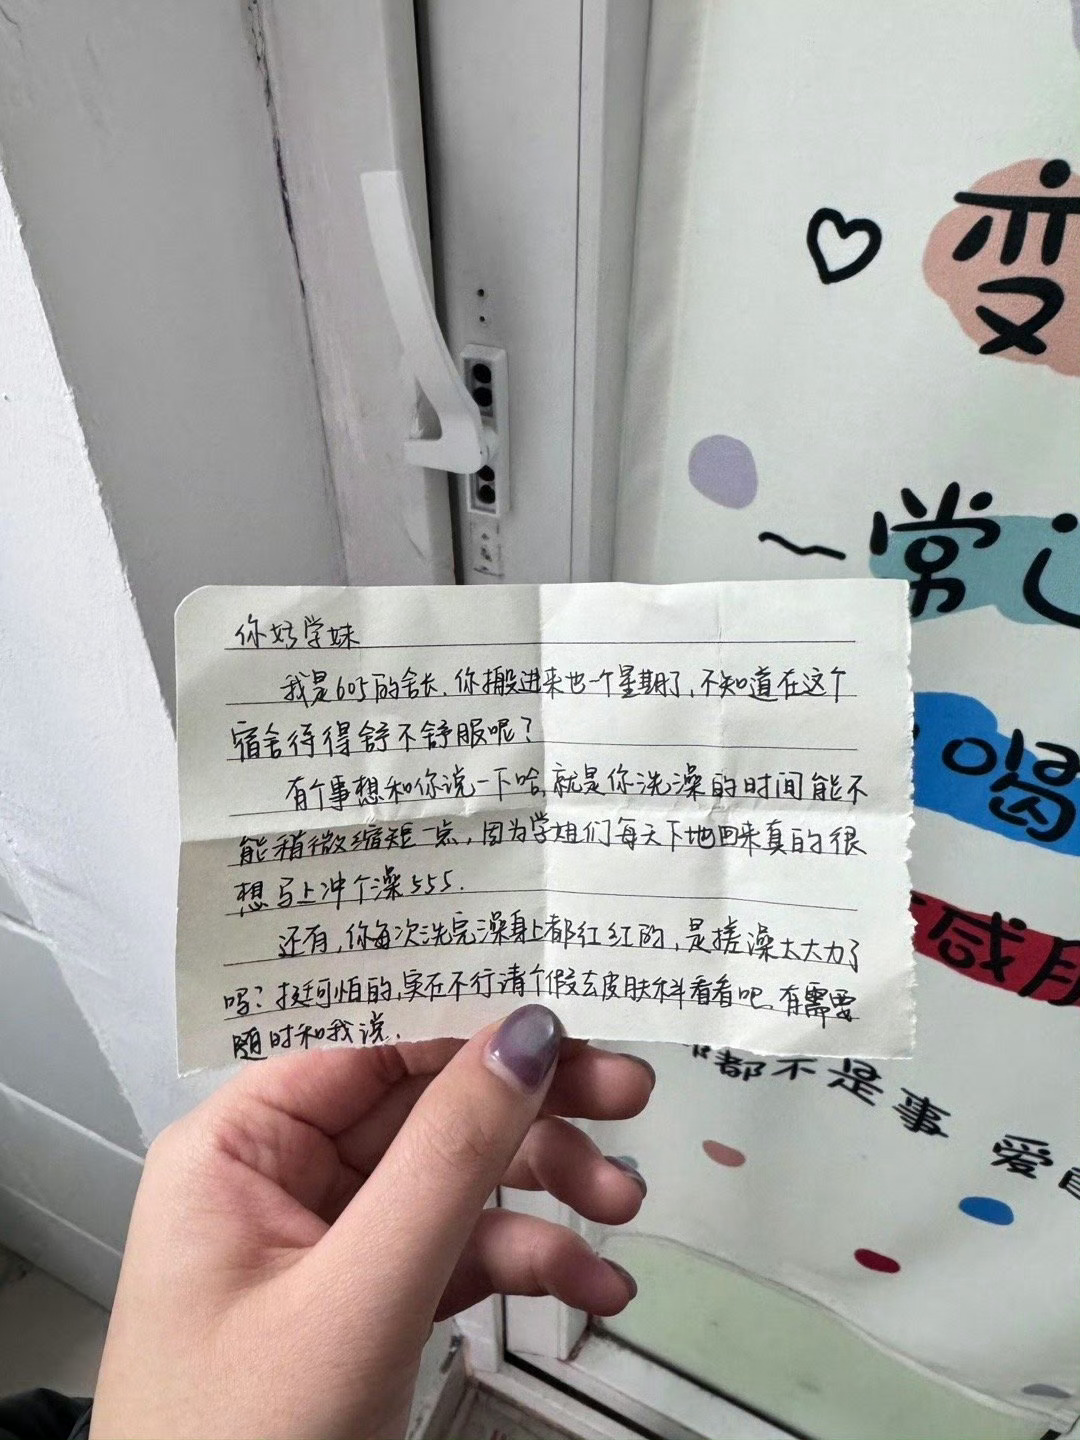 你好学妹
我是605的舍长,你搬进来也一个星期了,不知道在这个
宿舍待得舒不舒服呢?
有个事想和你说一下哈,就是你洗澡的时间能不
能稍微缩短一点,因为学姐们每天下地回来真的很
想马上冲个澡555.
还有,你每次洗完澡身上都红红的,是搓澡太大力了
吗?挺可怕的,实在不行请个假去皮肤科看看吧,有需要
随时和我说.
变
~常
喝
感
都不是事 爱